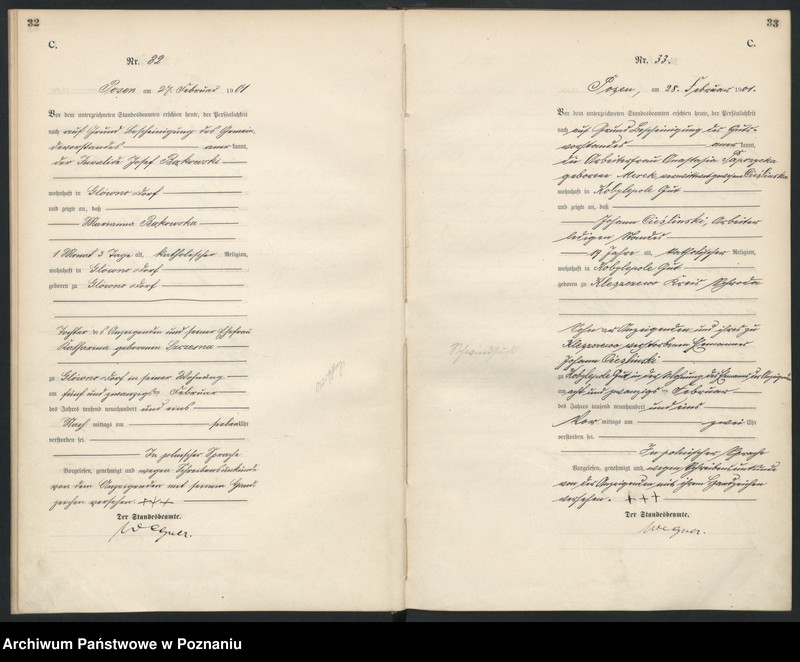 32
C.
Nr. 32
Posen am 27. Februar 1901
Vor dem unterzeichneten Standesbeamten erschien heute, der Persönlichkeit
nach auf Grund Bescheinigung des Gemein-
devorstandes anerkannt,
der Invalide Josef Bukowski
wohnhaft in Glowno Dorf
und zeigte an, daß
Marianna Bukowska
1 Monat 3 Tage alt, katholischer Religion,
wohnhaft in Glowno Dorf
geboren zu Glowno Dorf
Tochter des Anzeigenden und seiner Ehefrau
Katharina geborenen Szczesna
zu Glowno Dorf in seiner Wohnung
am fünf und zwanzigsten Februar
des Jahres tausend neunhundert und eins
Nach mittags um sieben Uhr
verstorben sei.
In polnischer Sprache
Vorgelesen, genehmigt und wegen Schreibensunkunde
von dem Anzeigenden mit seinem Hand-
zeichen versehen. +++
Der Standesbeamte.
Wegner.
33
C.
Nr. 33.
Posen, am 28. Februar 1901.
Vor dem unterzeichneten Standesbeamten erschien heute, der Persönlichkeit
nach auf Grund Bescheinigung des Guts-
vorstandes anerkannt,
die Arbeiterfrau Anastasia Paprzycka
geborene Merek, verwittwet gewesene Cieślinska
wohnhaft in Kobylepole Gut
und zeigte an, daß
Johann Cieślinski, Arbeiter
ledigen Standes
19 Jahre alt, katholischer Religion,
wohnhaft in Kobylepole Gut
geboren zu Kleszczewo Kreis Schroda
Sohn der Anzeigenden und ihres zu
Kleszczewo verstorbenen Ehemannes
Johann Cieślinski
zu Kobylepole Gut in der Wohnung des Ehemannes der Anzeigenden
am acht und zwanzigsten Februar
des Jahres tausend neunhundert und eins
Vor mittags um zwei Uhr
verstorben sei.
In polnischer Sprache
Vorgelesen, genehmigt und wegen Schreibensunkunde
von der Anzeigenden mit ihrem Handzeichen
versehen. +++
Der Standesbeamte.
Wegner.
Schwindsucht
Archiwum Państwowe w Poznaniu